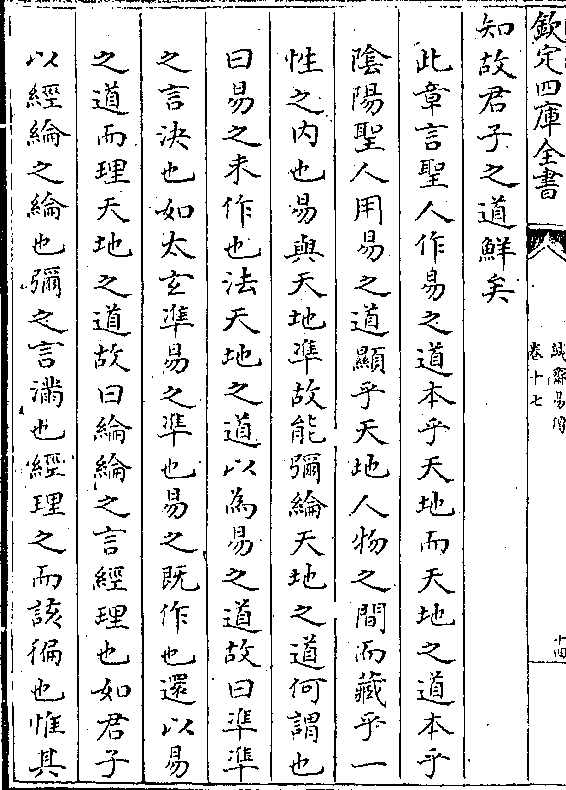 欽定四庫全書
誠齋易傳
卷十七
十四
知故君子之道鮮矣
此章言聖人作易之道本乎天地而天地之道本乎
陰陽聖人用易之道顯乎天地人物之間而藏乎一
性之内也易與天地準故能彌綸天地之道何謂也
曰易之未作也法天地之道以為易之道故曰準準
之言決也如太玄準易之準也易之既作也還以易
之道而理天地之道故曰綸綸之言經理也如君子
以經綸之綸也彌之言滿也經理之而該徧也惟其